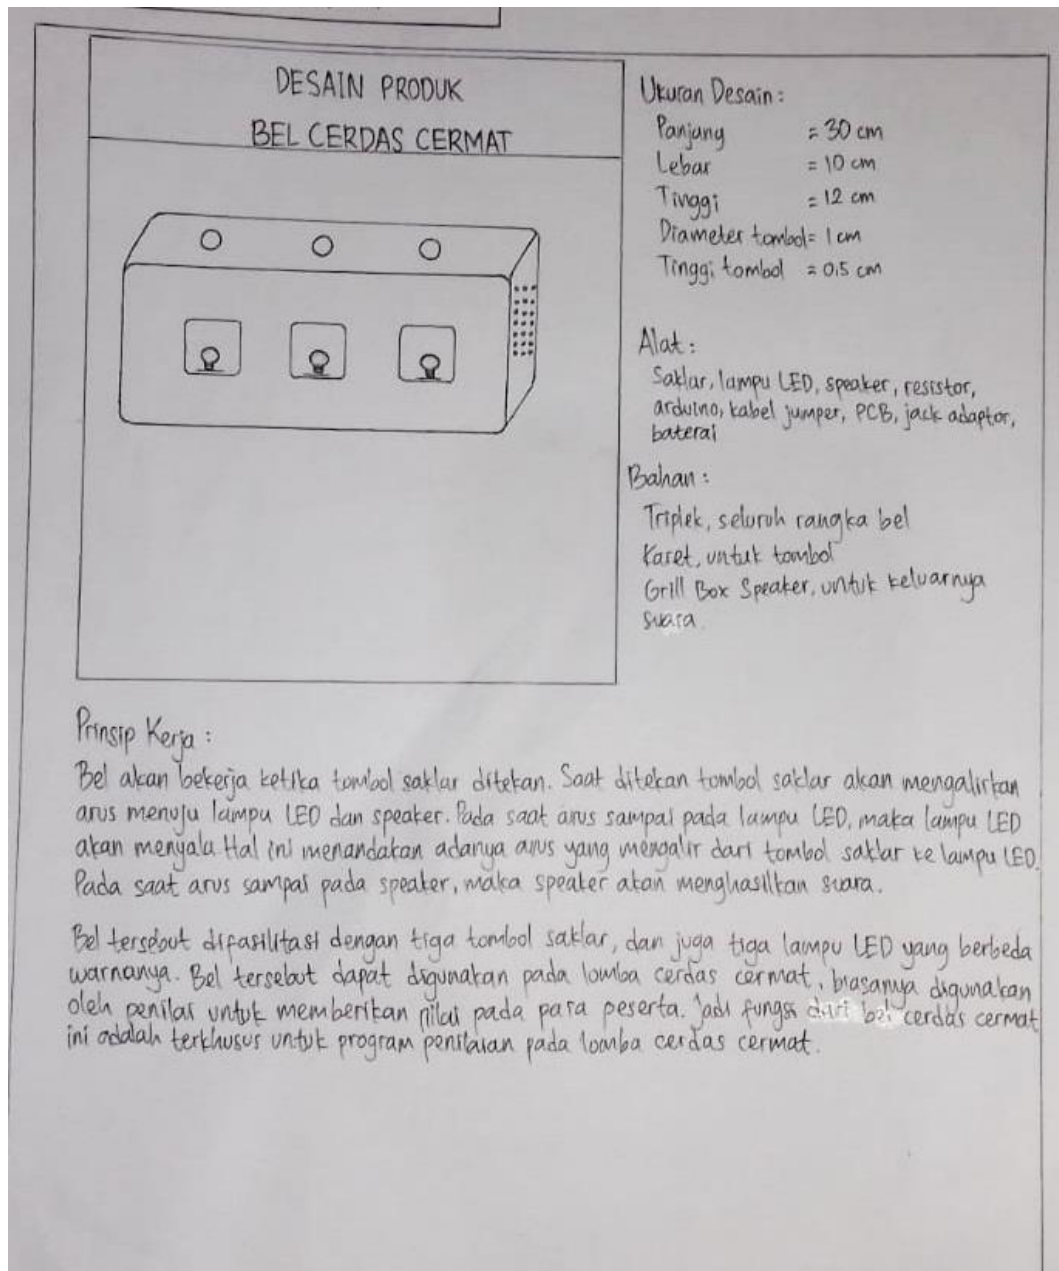 DESAIN PRODUK
BEL CERDAS CERMAT
Ukuran Desain :
Panjang = 30 cm
Lebar = 10 cm
Tinggi = 12 cm
Diameter tombol = 1 cm
Tinggi tombol = 0,5 cm
Alat :
Saklar, lampu LED, speaker, resistor,
arduino, kabel jumper, PCB, jack adaptor,
baterai
Bahan :
Triplek, seluruh rangka bel
Karet, untuk tombol
Grill Box Speaker, untuk keluarnya
suara.
Prinsip Kerja :
Bel akan bekerja ketika tombol saklar ditekan. Saat ditekan tombol saklar akan mengalirkan
arus menuju lampu LED dan speaker. Pada saat arus sampai pada lampu LED, maka lampu LED
akan menyala. Hal ini menandakan adanya arus yang mengalir dari tombol saklar ke lampu LED.
Pada saat arus sampai pada speaker, maka speaker akan menghasilkan suara.
Bel tersebut difasilitasi dengan tiga tombol saklar, dan juga tiga lampu LED yang berbeda
warnanya. Bel tersebut dapat digunakan pada lomba cerdas cermat, biasanya digunakan
oleh penilai untuk memberikan nilai pada para peserta. Jadi fungsi dari bel cerdas cermat
ini adalah terkhusus untuk program penilaian pada lomba cerdas cermat.